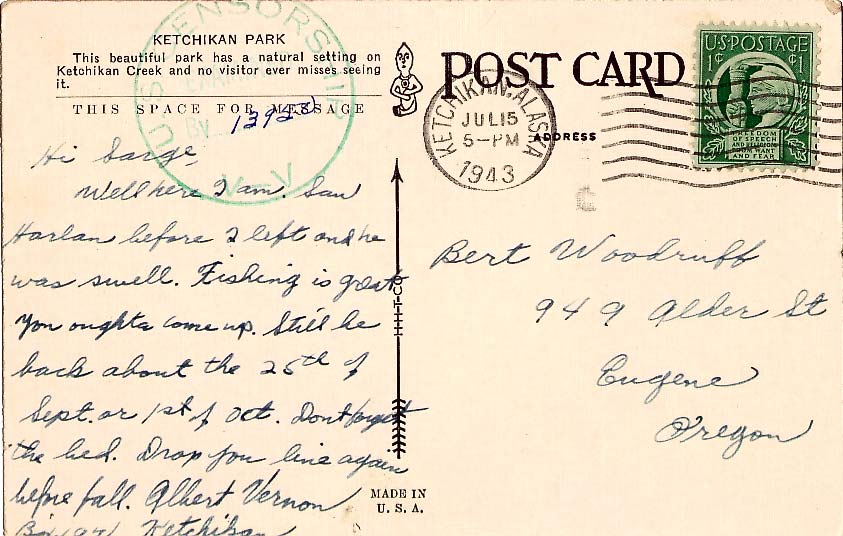 KETCHIKAN PARK
This beautiful park has a natural setting on
Ketchikan Creek and no visitor ever misses seeing
it.
THIS SPACE FOR MESSAGE
US CENSORSHIP
By 13923
V-V
Hi Sarge,
Well here I am. Saw
Harlan before I left and he
was swell. Fishing is great
You oughta come up. Still be
back about the 25th of
Sept. or 1st of Oct. Dont forget
the bed. Drop you line again
before fall. Albert Vernon
Box Ketchikan
POST CARD
ADDRESS
KETCHIKAN, ALASKA
JUL 15
5-PM
1943
U.S. POSTAGE
1¢ ¢1
FREEDOM
OF SPEECH
AND RELIGION
FROM WANT
AND FEAR
Bert Woodruff
949 Alder St
Eugene
Oregon
H-H-T-CO.
MADE IN
U. S. A.